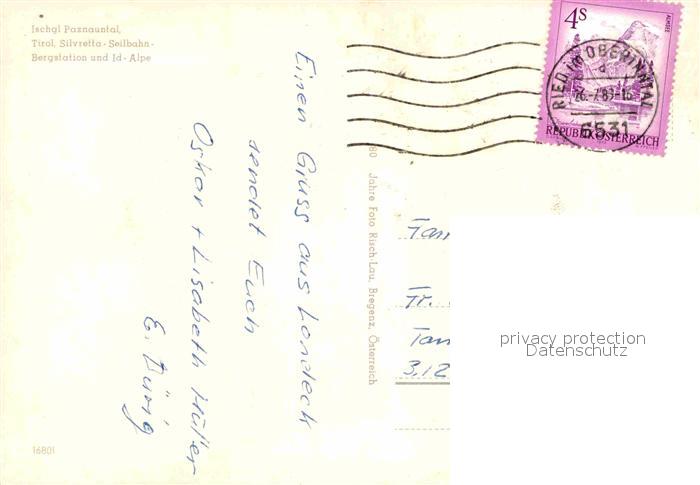 Ischgl Paznauntal,
Tirol, Silvretta-Seilbahn-
Bergstation und Id-Alpe
4S
ALMSEE
REPUBLIK ÖSTERREICH
RIED IM OBERINNTAL
6531
Einen Gruss aus Landeck
sendet Euch
Oskar + Lisabeth
E.
80 Jahre Foto Risch-Lau, Bregenz, Österreich
Fam
Fr.
Tan
3,12
privacy protection
Datenschutz
16801